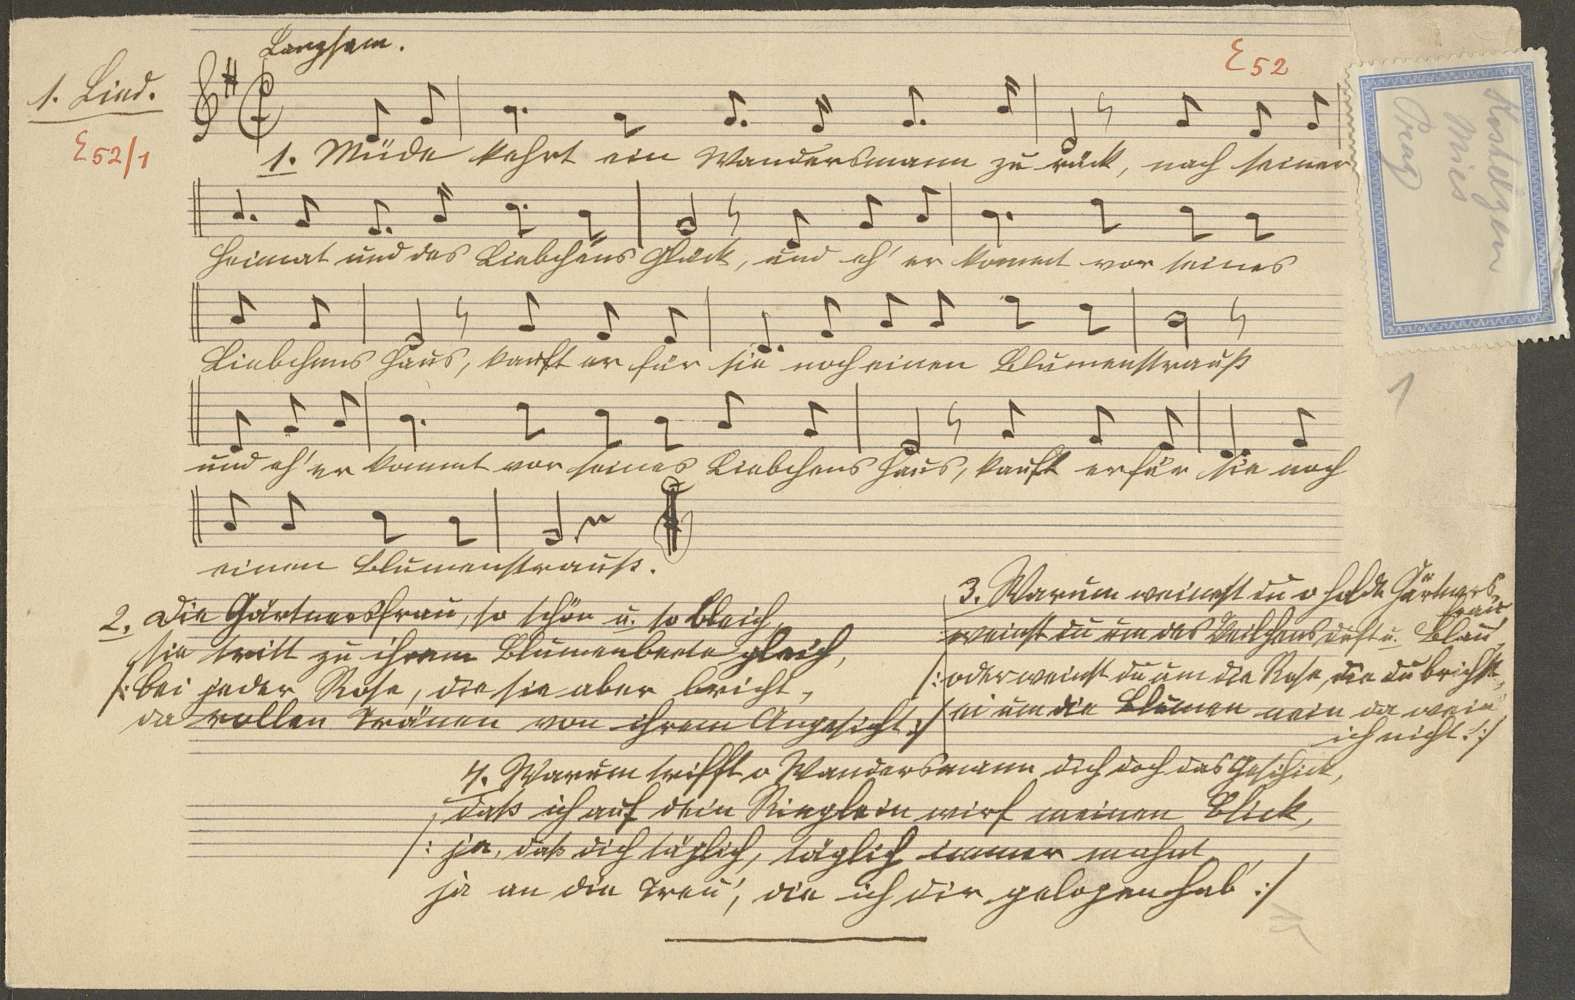 Langsam.
1. Lied.
E 52
E 52/1
1. Müde kehrt ein Wandersmann zurück, nach seiner
Heimat und des Liebchens Glück, und eh' er kommt vor seines
Liebchens Haus, kauft er für sie noch einen Blumenstrauß
und eh' er kommt vor seines Liebchens Haus, kauft er für sie noch
einen Blumenstrauß.
2. Die Gärtnersfrau, so schön u. so bleich,
sie tritt zu ihrem Blumenbeete gleich,
/: bei jeder Rose, die sie aber bricht,
da rollen Tränen von ihrem Angesicht :/
3. Warum weinst du o holde Gärtners
frau
weinst du um des Veilchens Duft u. Blau,
/: oder weinst du um die Rose, die du brichst,
ei um die Blumen nein da wein
ich nicht. :/
4. Warum trifft o Wandersmann dich doch das Geschick,
daß ich auf dein Ringlein wirf meinen Blick,
/: ja, daß dich täglich, täglich immer mahnt
ja an die Treu', die ich dir gelogen hab' :/
Mies
Prag
1
15